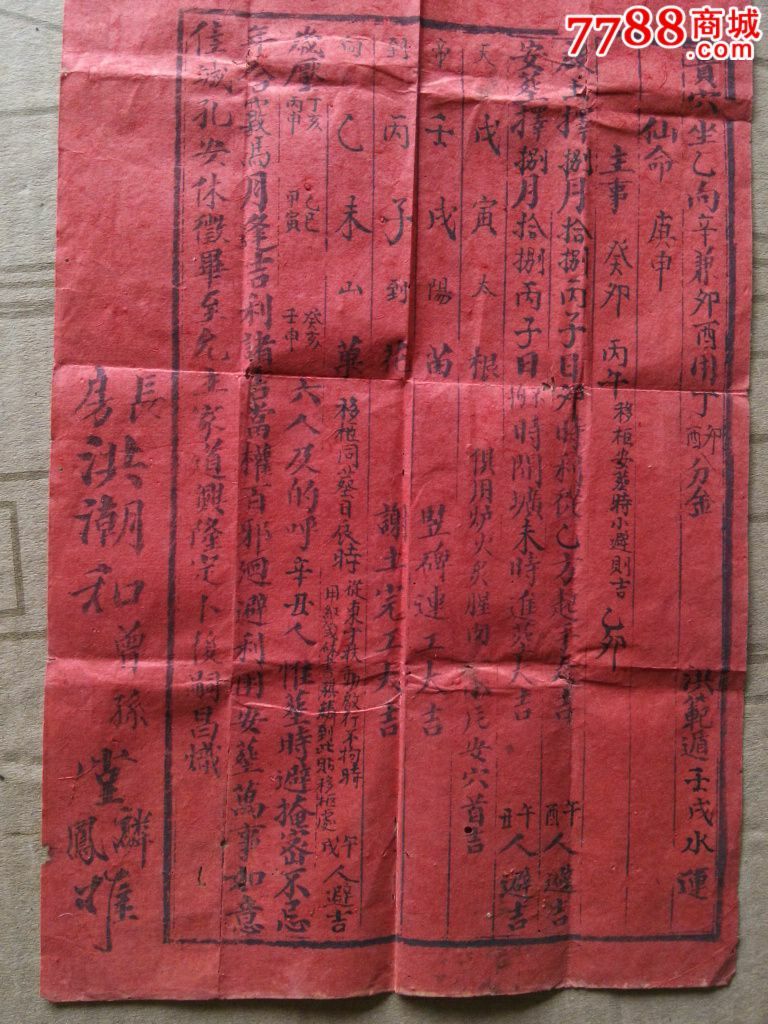 7788商城
穴坐乙向辛兼卯酉用丁卯酉分金 洪範遁壬戌水運
仙命 庚申
主事 癸卯 丙午移柩安葬時小避則吉 乙卯
主擇捌月拾捌丙子日卯時利從乙方起手大吉 午酉人避吉
安葬擇捌月拾捌丙子日不拘時開壙未時進葬大吉 午丑人避吉
天戊寅太 根 俱用炉火炙腥肉 安穴首吉
帝壬戌陽 苗 竪碑連工大吉
到丙子到 花 謝土完工大吉
向乙未山 菓 移柩同葬日 時從東方 動啟行不拘時 用紅 到此貼移柩處 午戌人避吉
歲壓丁亥丙申 乙巳甲寅 癸亥壬申六人及的呼辛丑人惟塟時避掩密不忌
年合 馬月逢吉利諸吉當權百邪廻避利用安塟萬事如意
佳城孔安休徵畢至允 家道興隆定卜後嗣昌熾
長房洪潮和曾孫堂 麟 鳳